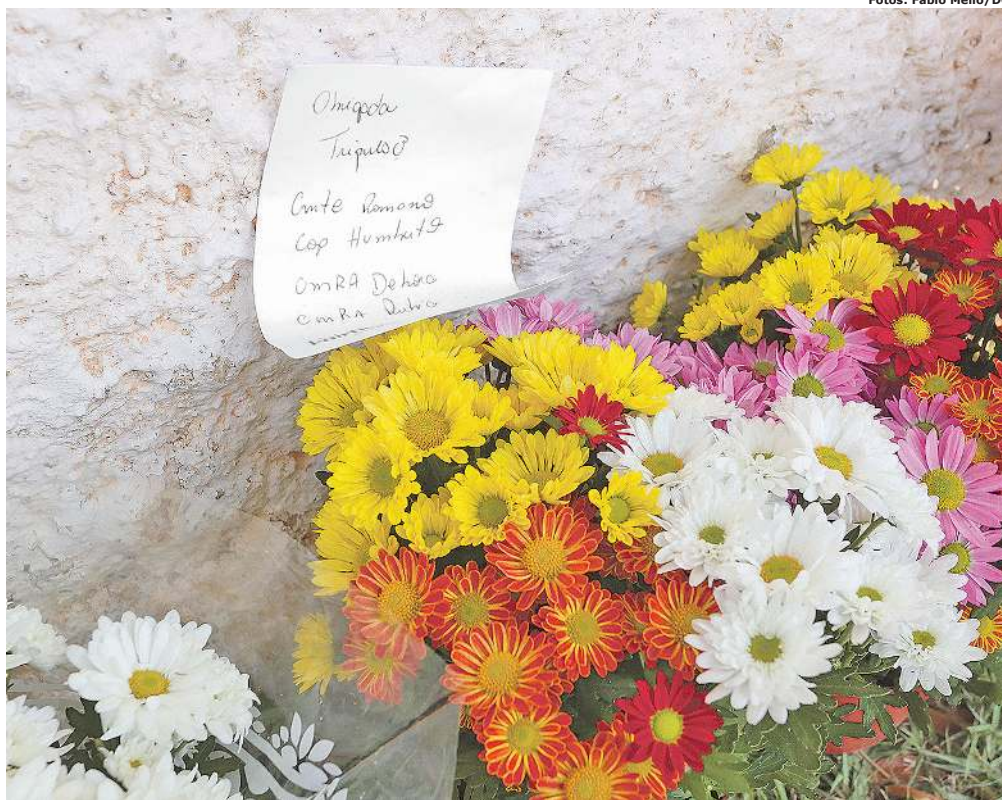 Fotos: Fábio Mello/D
Obrigada
Tripulaçã
Cmte Romano
Cop Humberto
CmRA Debora
CmRA Rubia